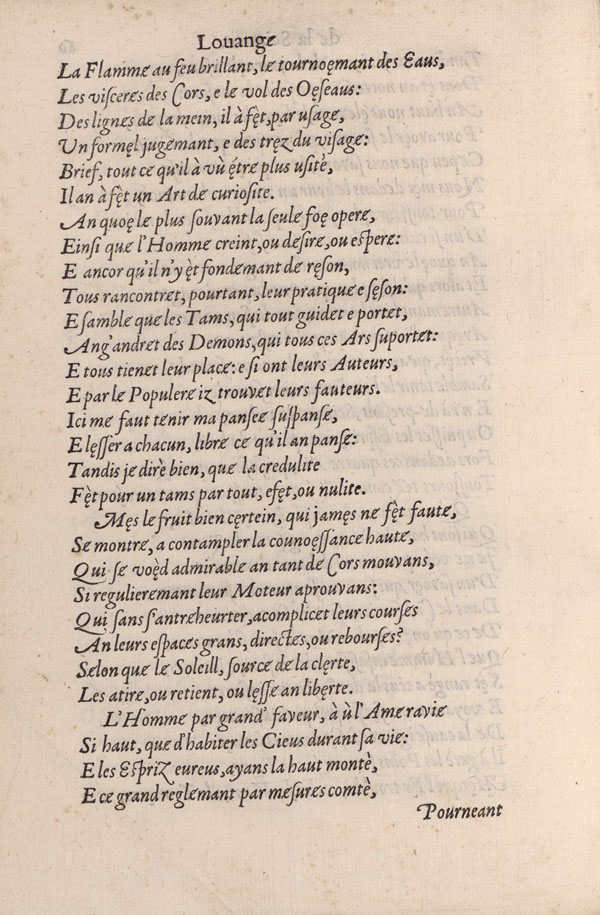 Louange
La Flamme au feu brillant, le tournoęmant des Eaus,
Les visceres des Cors, e le vol des Oęseaus:
Des lignes de la mein, il à fęt, par usage,
Un formęl jugemant, e des tręz du visage:
Brief, tout ce qu'il à vù étre plus usitè,
Il an à fęt un Art de curiosite.
An quoę le plus souvant la seule foę opere,
Einsi que l'Homme creint, ou desire, ou espere:
E ancor qu'il n'y èt fondemant de ręson,
Tous rancontret, pourtant, leur pratique e sęson:
E samble que les Tams, qui tout guidet e portet,
Ang'andret des Demons, qui tous ces Ars suportet:
E tous tienet leur place: e si ont leurs Auteurs,
E par le Populere iz trouvet leurs fauteurs.
Ici me faut tenir ma pansee suspanse,
E lęsser a chacun, libre ce qu'il an panse:
Tandis je dire bien, que la credulite
Fęt pour un tams par tout, efęt, ou nulite.
Męs le fruit bien cęrtein, qui jamęs ne fęt faute,
Se montre, a contampler la counoęssance haute,
Qui se voęd admirable an tant de Cors mouvans,
Si regulieremant leur Moteur aprouvans:
Qui sans s'antreheurter, acomplicet leurs courses
An leurs espaces grans, directes, ou rebourses?
Selon que le Soleill, source de la clęrte,
Les atire, ou retient, ou lęsse an libęrte.
L'Homme par grand' faveur, à ù l'Ame ravie
Si haut, que d'habiter les Cieus durant sa vie:
E les Espriz eureus, ayans la haut montè,
E ce grand reglemant par mesures comtè,
Pourneant